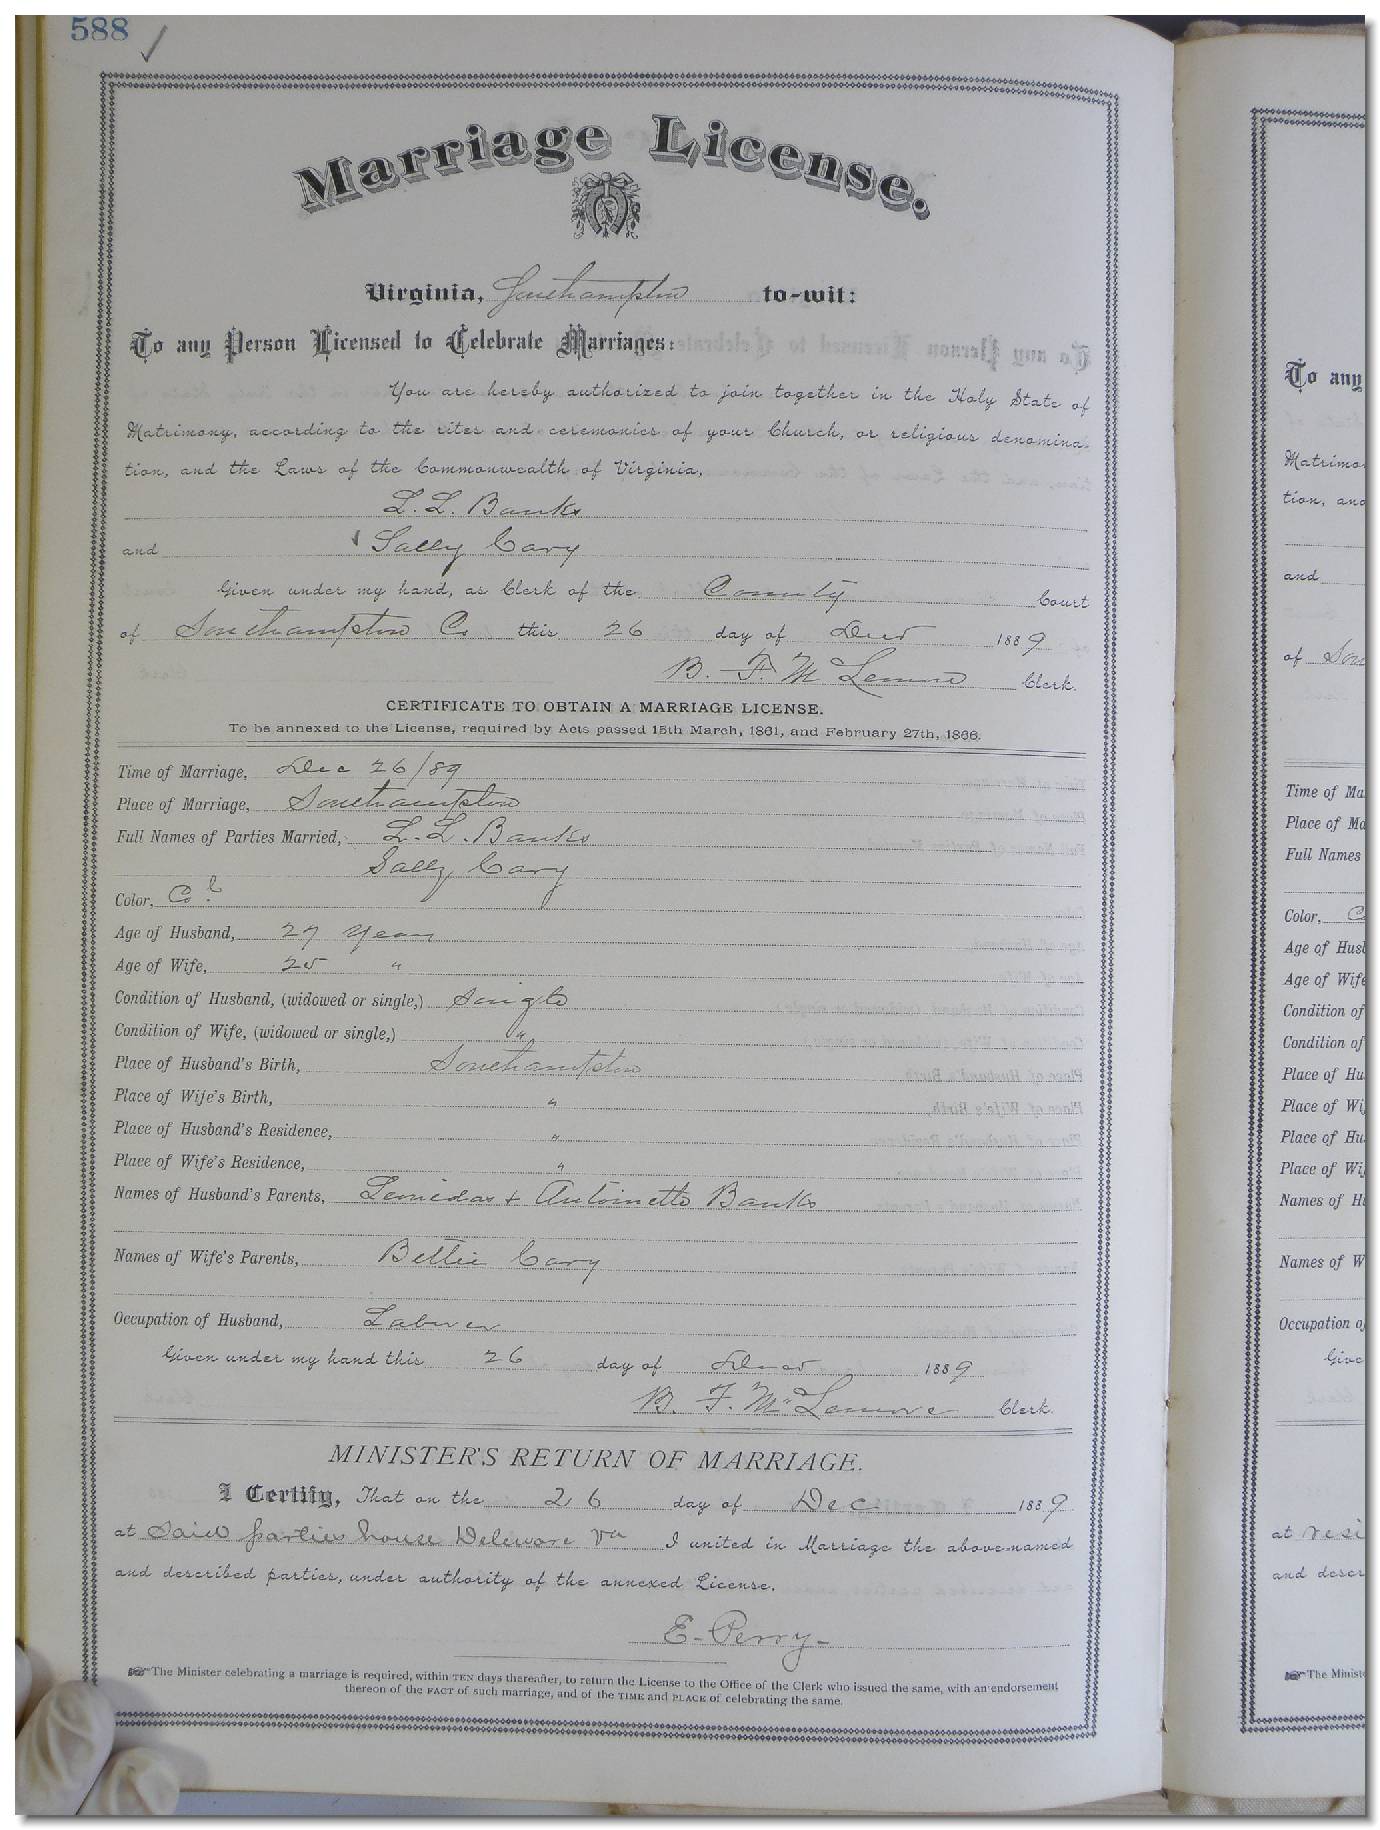 588
Marriage License.
Virginia, Southampton to-wit:
To any Person Licensed to Celebrate Marriages:
You are hereby authorized to join together in the Holy State of
Matrimony, according to the rites and ceremonies of your Church, or religious denomina-
tion, and the Laws of the Commonwealth of Virginia,
L. L. Banks
and Sally Cary
Given under my hand, as Clerk of the County Court
of Southampton Co this 26 day of 1889
B. F. McLemore Clerk.
CERTIFICATE TO OBTAIN A MARRIAGE LICENSE.
To be annexed to the License, required by Acts passed 15th March, 1861, and February 27th, 1866.
Time of Marriage, Dec 26/89
Place of Marriage, Southampton
Full Names of Parties Married, L. L. Banks
Sally Cary
Color, Col
Age of Husband, 27 years
Age of Wife, 25 "
Condition of Husband, (widowed or single,) Single
Condition of Wife, (widowed or single,) "
Place of Husband's Birth, Southampton
Place of Wife's Birth, "
Place of Husband's Residence, "
Place of Wife's Residence, "
Names of Husband's Parents, Leonidas & Antoinette Banks
Names of Wife's Parents, Bettie Cary
Occupation of Husband, Laborer
Given under my hand this 26 day of 1889
B. F. McLemore Clerk.
MINISTER'S RETURN OF MARRIAGE.
I Certify, That on the 26 day of Dec 1889
at Said parties house Deleware Va I united in Marriage the above-named
and described parties, under authority of the annexed License.
E. Perry
☞The Minister celebrating a marriage is required, within TEN days thereafter, to return the License to the Office of the Clerk who issued the same, with an endorsement
thereon of the FACT of such marriage, and of the TIME and PLACE of celebrating the same.
To any
Matrimo
tion, and
and
of Sou
Time of Ma
Place of Ma
Full Names
Color, C
Age of Hus
Age of Wife
Condition of
Condition of
Place of Hu
Place of Wi
Place of Hu
Place of Wi
Names of H
Names of W
Occupation o
Give
at resi
and descr
☞The Minist